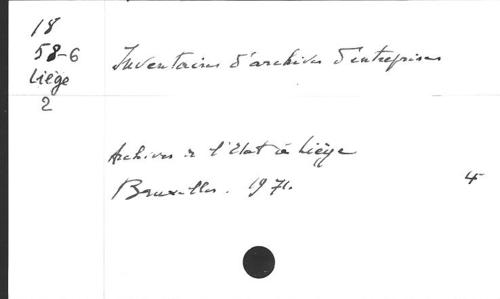 18
58-6
Liège
2
Inventaires d'archives d'entreprises
Archives de l'Etat à Liège
Bruxelles. 1971.
4